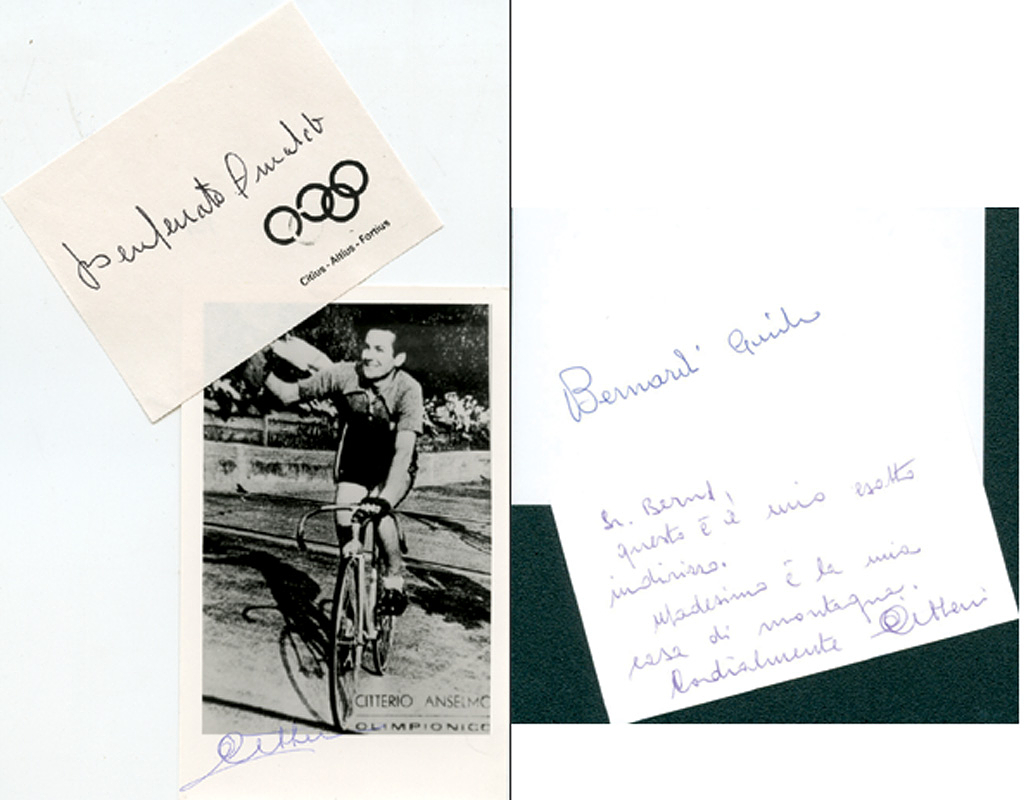 Benfenato Arnaldo
Citius - Altius - Fortius
CITTERIO ANSELMO
OLIMPIONICO
Citterio
Bernardi Guido
Sr. Bernd,
questo è il mio esatto
indirizzo.
Madesimo è la mia
casa di montagna.
Cordialmente Citterio